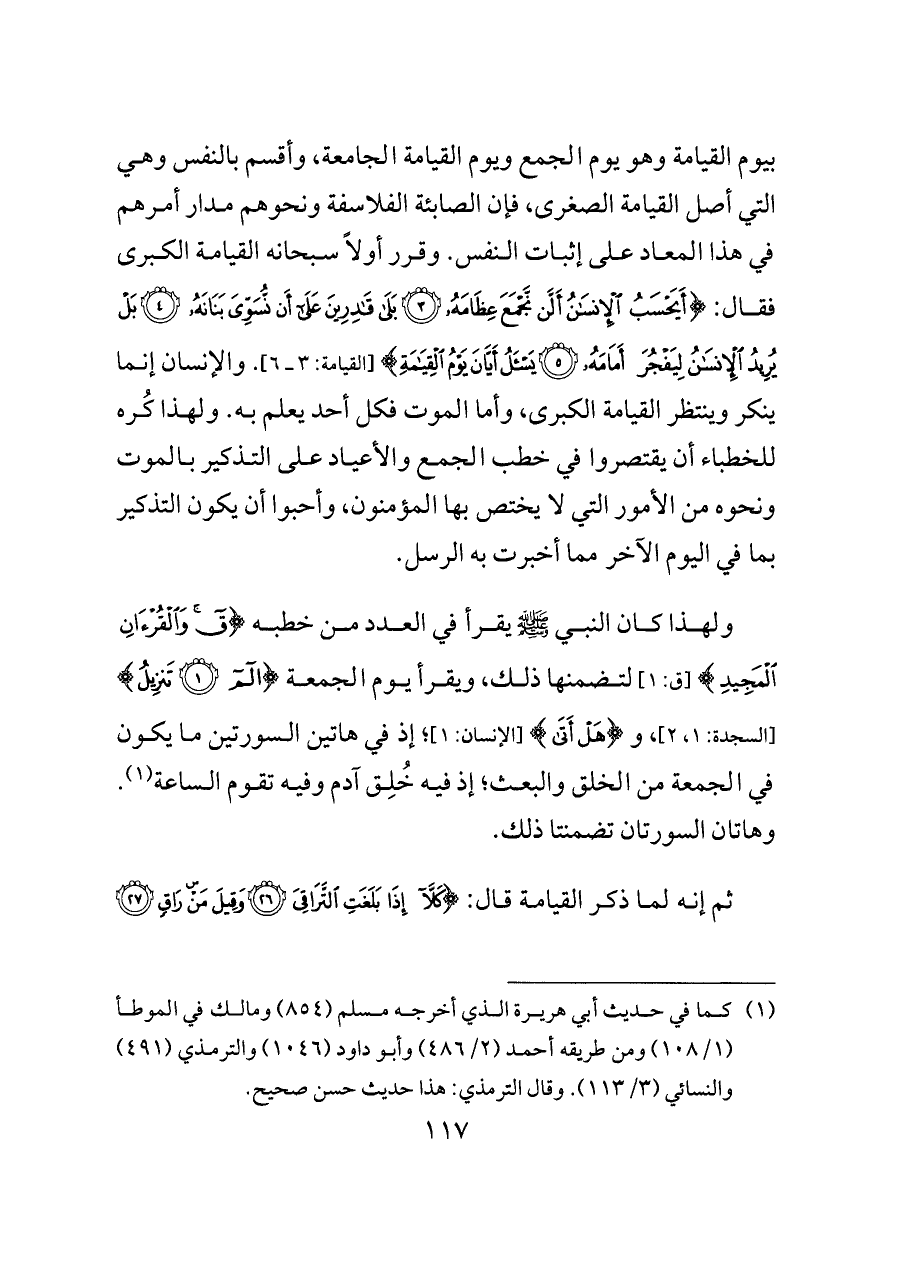 بيوم القيامة وهو يوم الجمع ويوم القيامة الجامعة، وأقسم بالنفس وهي
التي أصل القيامة الصغرى، فإن الصابئة الفلاسفة ونحوهم مدار أمرهم
في هذا المعاد على إثبات النفس. وقرر أولاً سبحانه القيامة الكبرى
فقال: ﴿أَيَحْسَبُ ٱلْإِنسَٰنُ أَلَّن نَّجْمَعَ عِظَامَهُۥ ۝٣ بَلَىٰ قَٰدِرِينَ عَلَىٰٓ أَن نُّسَوِّىَ بَنَانَهُۥ ۝٤ بَلْ
يُرِيدُ ٱلْإِنسَٰنُ لِيَفْجُرَ أَمَامَهُۥ ۝٥ يَسْـَٔلُ أَيَّانَ يَوْمُ ٱلْقِيَٰمَةِ﴾ [القيامة: ٣ـ٦]. والإنسان إنما
ينكر وينتظر القيامة الكبرى، وأما الموت فكل أحد يعلم به. ولهذا كُره
للخطباء أن يقتصروا في خطب الجمع والأعياد على التذكير بالموت
ونحوه من الأمور التي لا يختص بها المؤمنون، وأحبوا أن يكون التذكير
بما في اليوم الآخر مما أخبرت به الرسل.
ولهذا كان النبي ﷺ يقرأ في العدد من خطبه ﴿قٓ ۚ وَٱلْقُرْءَانِ
ٱلْمَجِيدِ﴾ [ق: ١] لتضمنها ذلك، ويقرأ يوم الجمعة ﴿الٓمٓ ۝١ تَنزِيلُ﴾
[السجدة: ١، ٢]، و ﴿هَلْ أَتَىٰ﴾ [الإنسان: ١]؛ إذ في هاتين السورتين ما يكون
في الجمعة من الخلق والبعث؛ إذ فيه خُلِق آدم وفيه تقوم الساعة(١).
وهاتان السورتان تضمنتا ذلك.
ثم إنه لما ذكر القيامة قال: ﴿كَلَّآ إِذَا بَلَغَتِ ٱلتَّرَاقِىَ ۝٢٦ وَقِيلَ مَنْ ۜ رَاقٍ ۝٢٧
(١) كما في حديث أبي هريرة الذي أخرجه مسلم (٨٥٤) ومالك في الموطأ
(١/ ١٠٨) ومن طريقه أحمد (٢/ ٤٨٦) وأبو داود (١٠٤٦) والترمذي (٤٩١)
والنسائي (٣/ ١١٣). وقال الترمذي: هذا حديث حسن صحيح.
١١٧